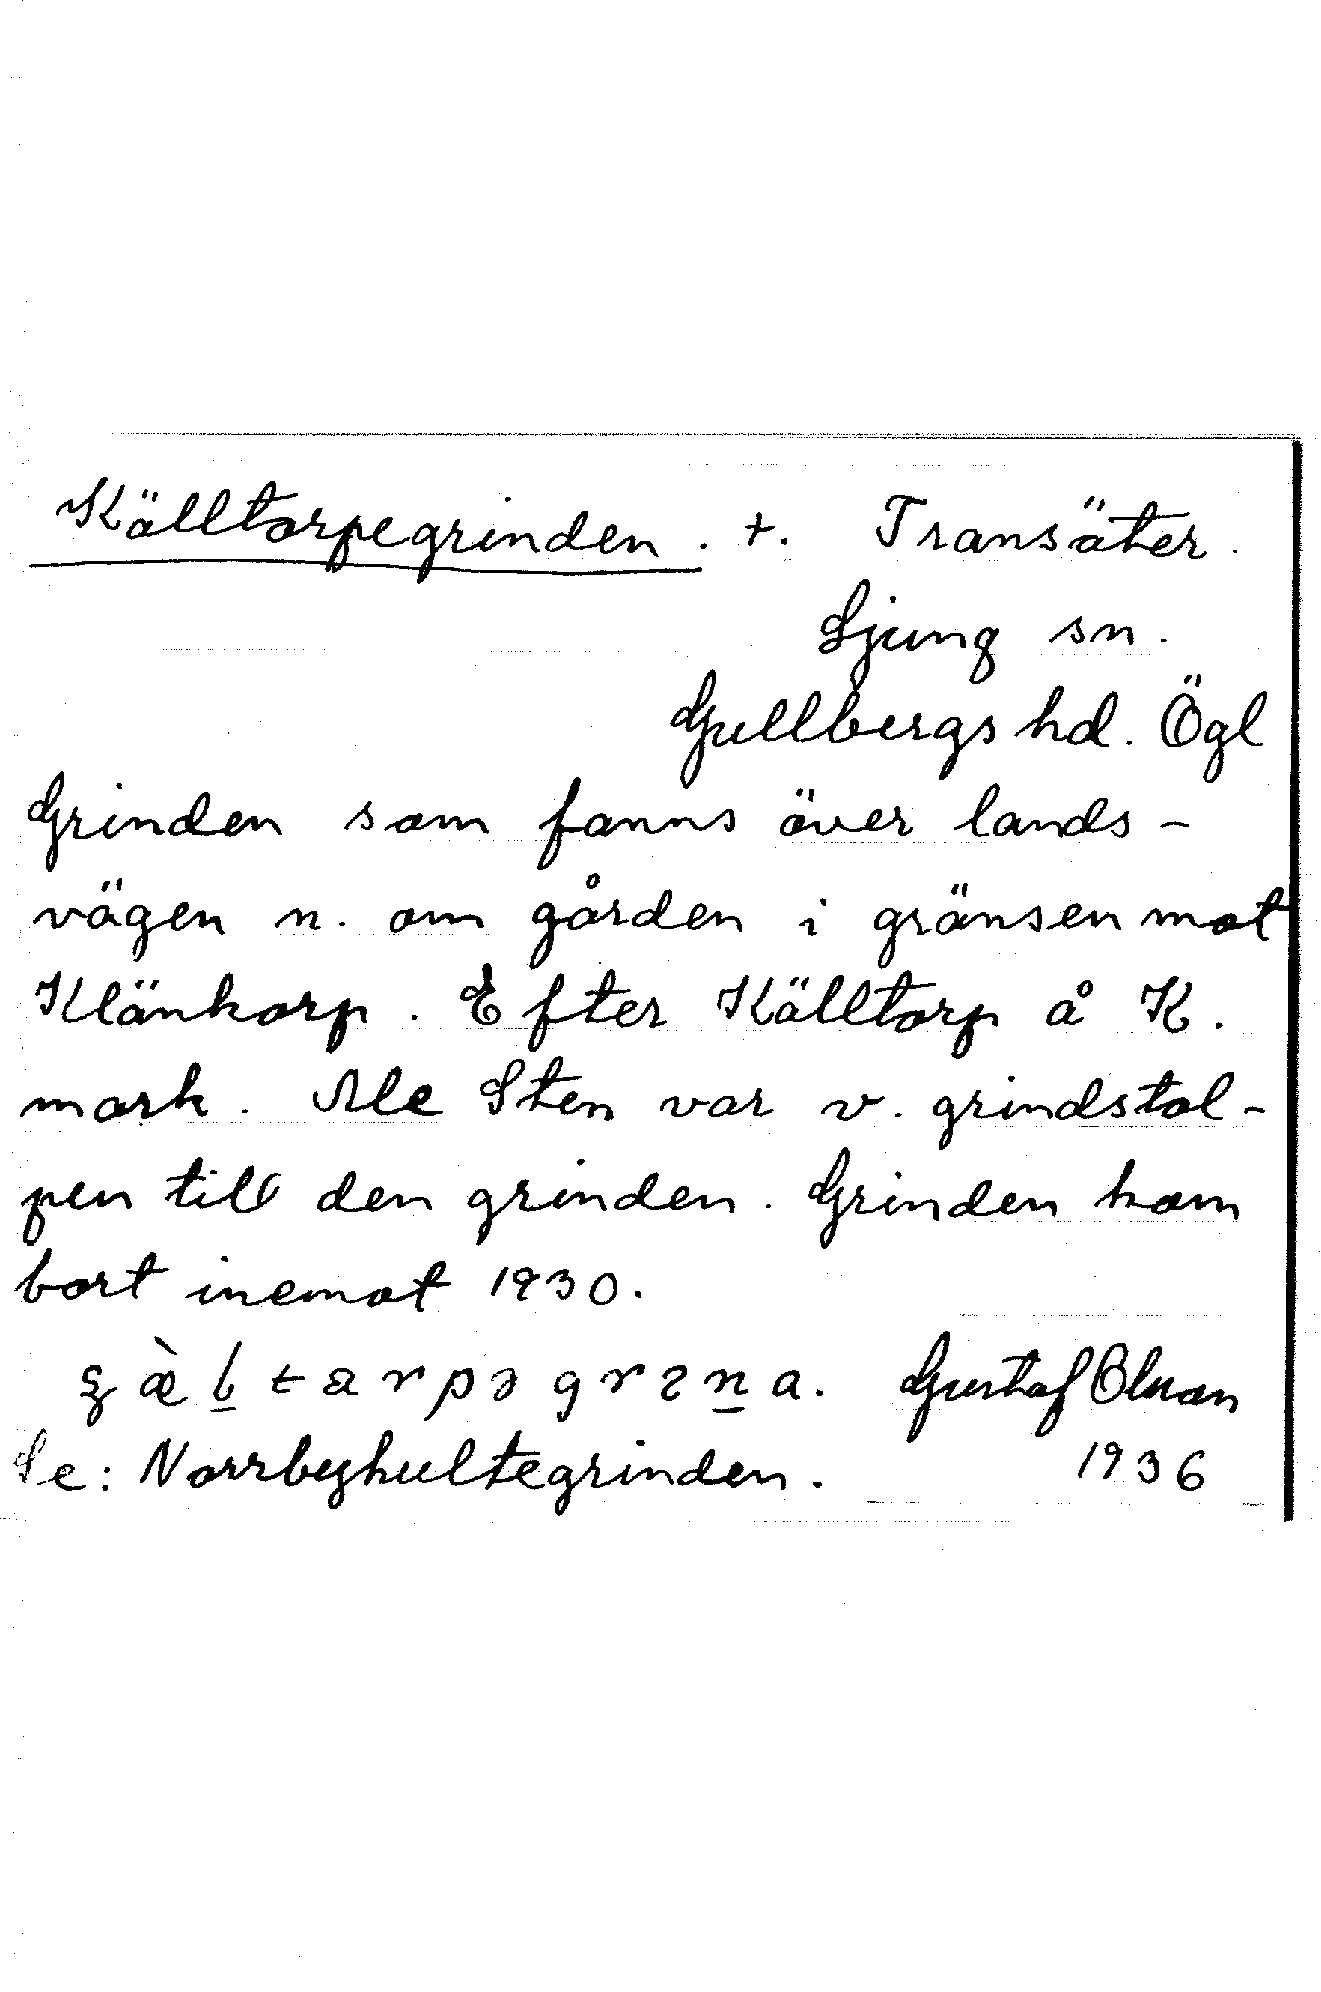 Källtorpegrinden. +. Transäter.
Ljung sn.
Gullbergs hd. Ögl
Grinden som fanns över lands-
vägen n. om gården i gränsen mot
Klänkorp. Efter Källtorp å K.
mark. Ale Sten var v. grindstol-
pen till den grinden. Grinden kom
bort inemot 1930.
Gustaf Olsson
Se: Norrbyhultegrinden. 1936